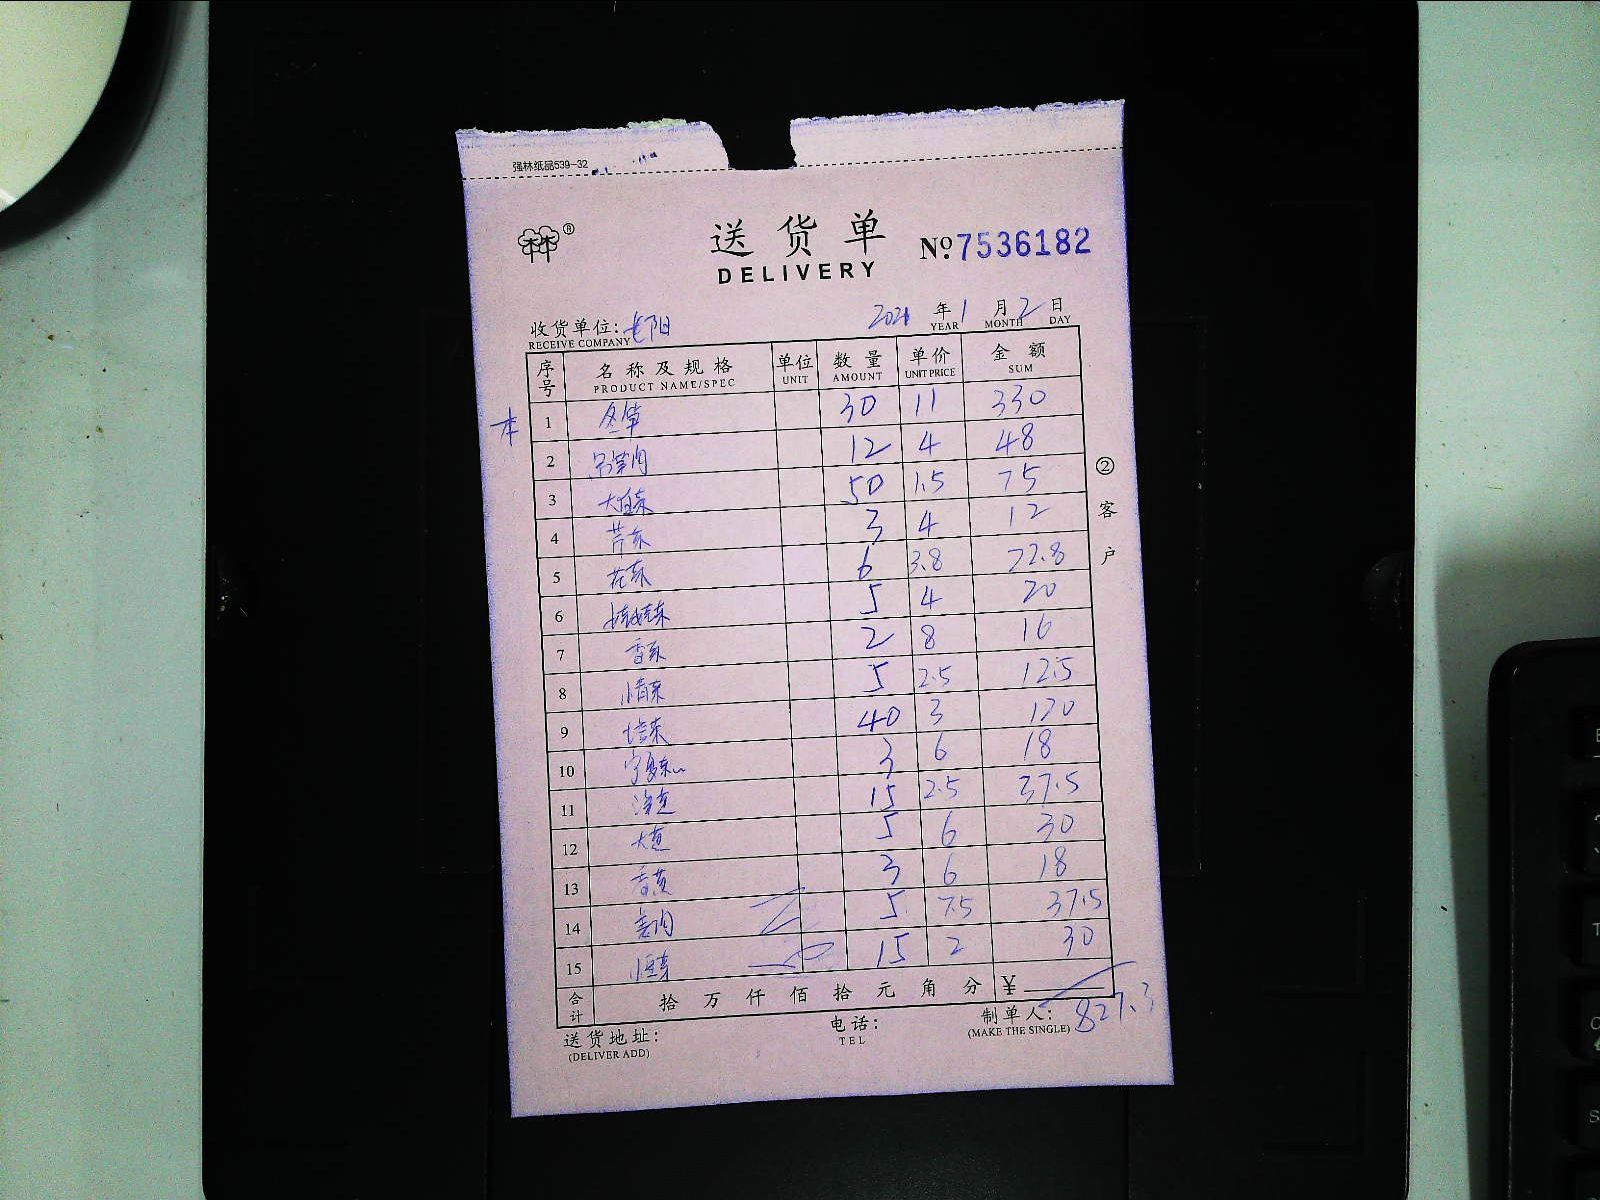 强林纸品539-32
林®
送货单
DELIVERY
No.7536182
2021年1月2日
YEAR MONTH DAY
收货单位:
RECEIVE COMPANY
序号 名称及规格 单位 数量 单价 金额
PRODUCT NAME/SPEC UNIT AMOUNT UNIT PRICE SUM
本
1 冬笋 30 11 330
2 12 4 48
3 大白菜 50 1.5 75
4 芹菜 3 4 12
5 花菜 6 3.8 22.8
6 5 4 20
7 香菜 2 8 16
8 5 2.5 12.5
9 40 3 120
10 3 6 18
11 洋葱 15 2.5 37.5
12 大葱 5 6 30
13 香葱 3 6 18
14 5 7.5 37.5
15 15 2 30
②客户
合计 拾万仟佰拾元角分 ¥
827.3
送货地址:
(DELIVER ADD)
电话:
TEL
制单人:
(MAKE THE SINGLE)